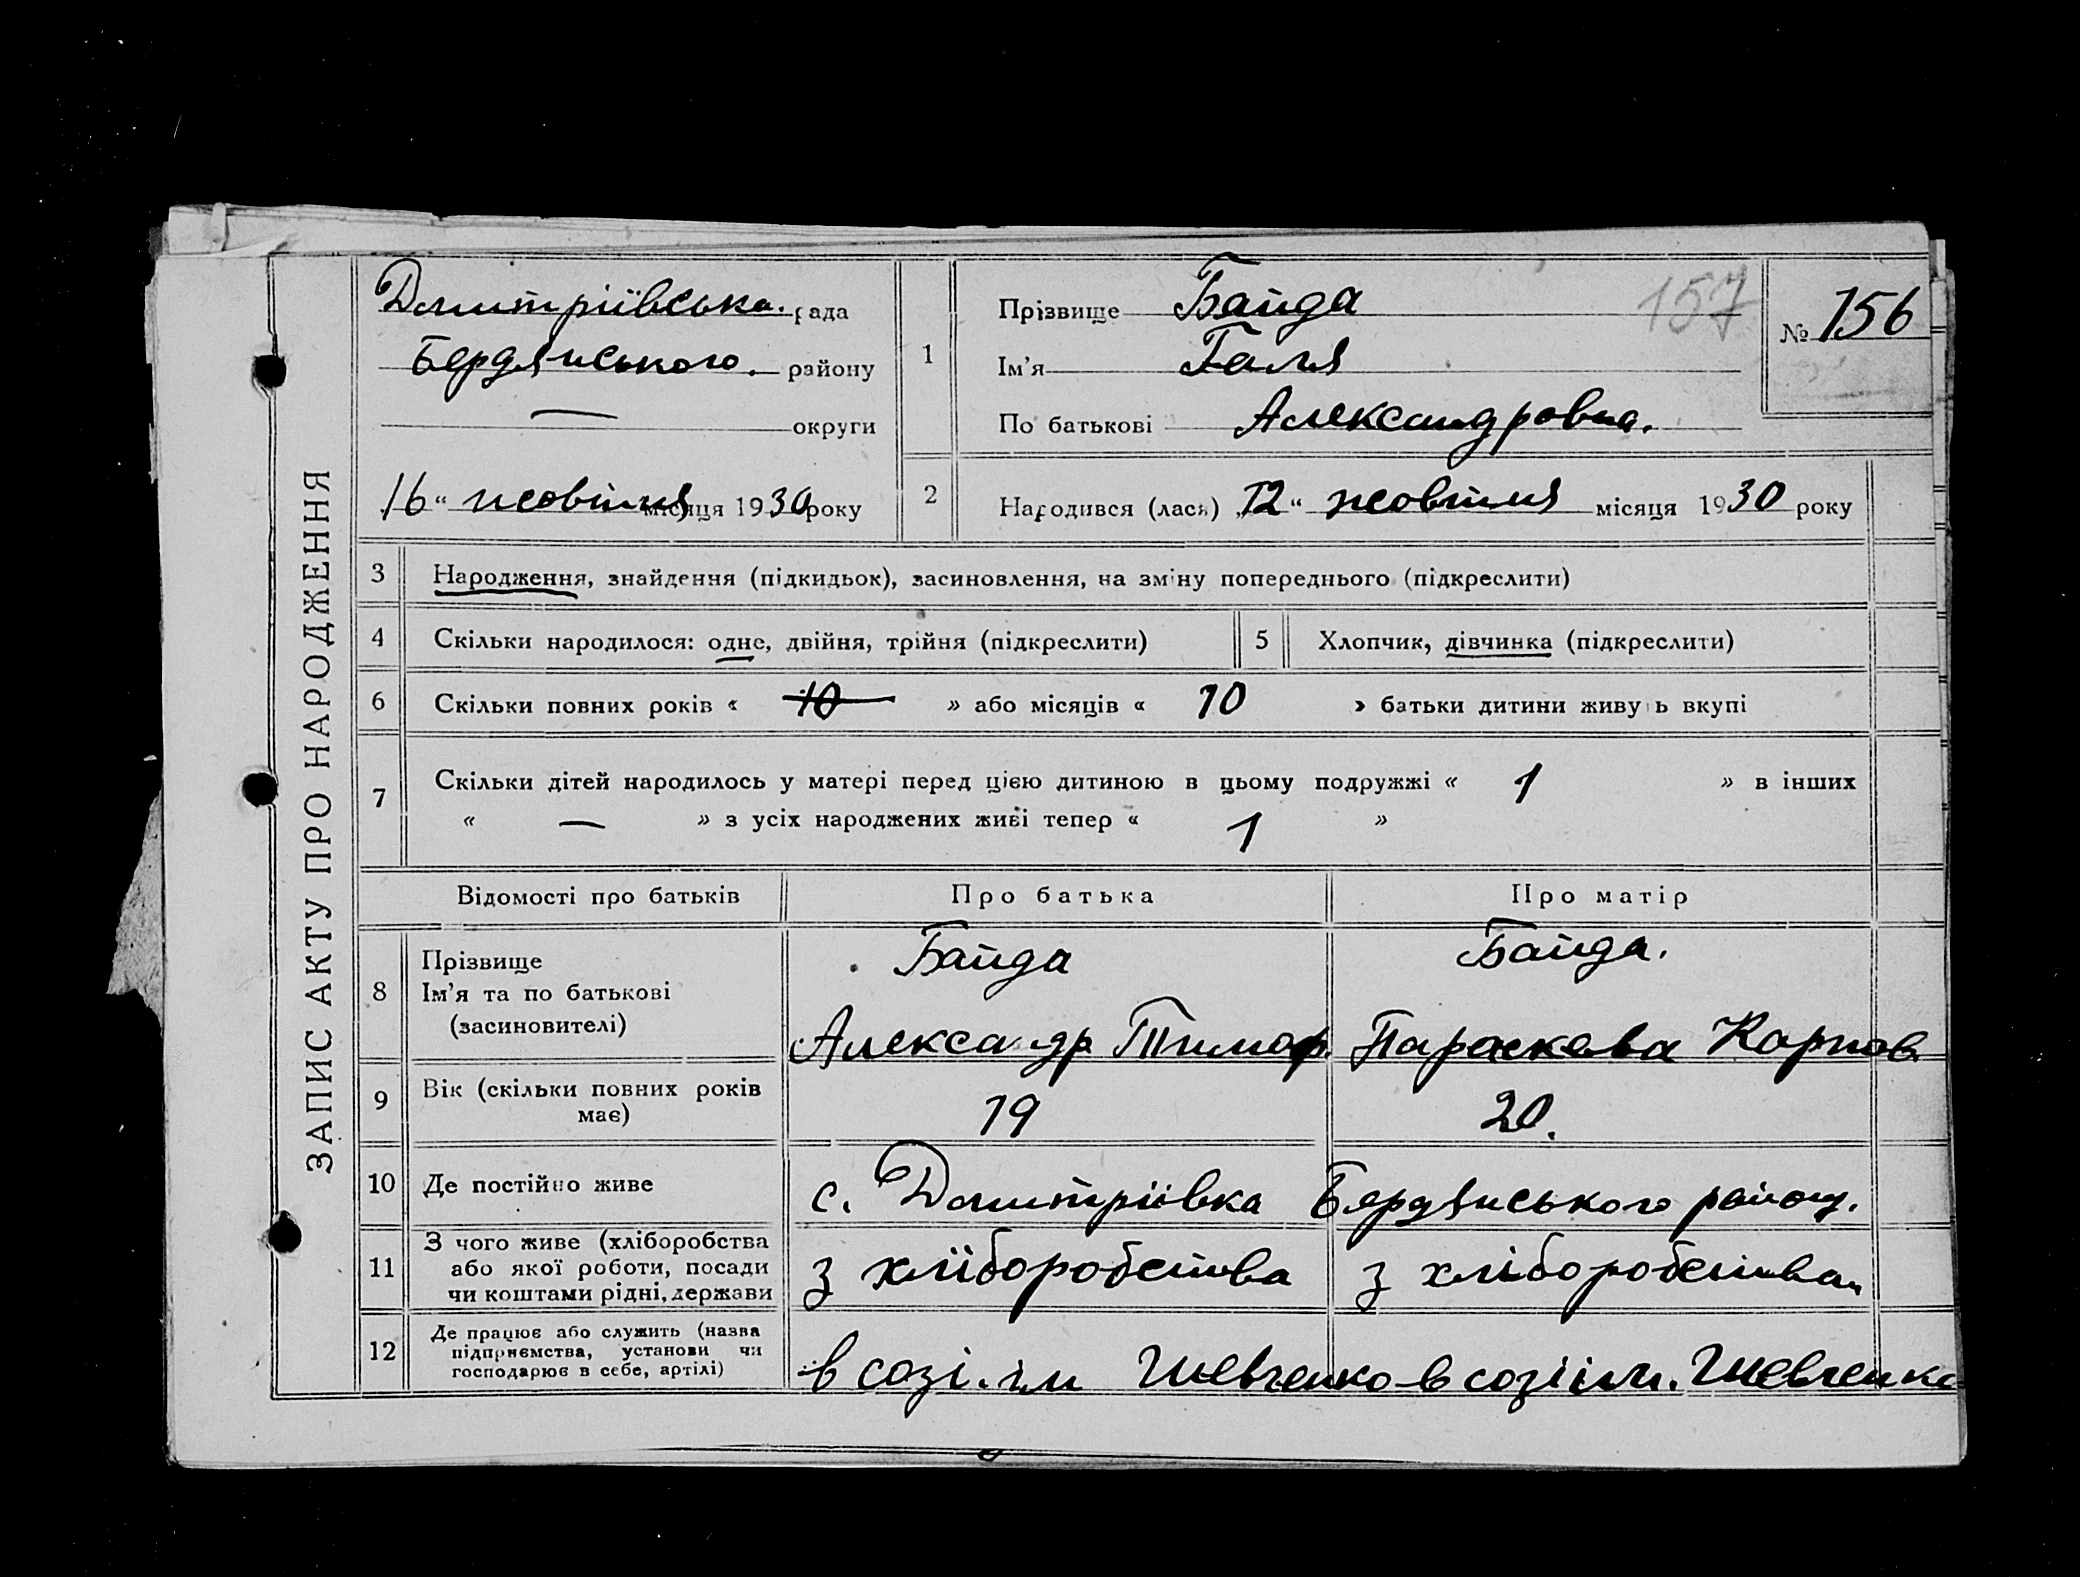 ЗАПИС АКТУ ПРО НАРОДЖЕННЯ
Дмитріївська. рада
Бердянського. району
— округи
16 “ жовтня місяця 1930 року
1
Прізвище Байда
Ім’я Галя
По батькові Александровна.
157
№ 156
2
Народився (лася) „12“ жовтня місяця 1930 року
3 Народження, знайдення (підкидьок), засиновлення, на зміну попереднього (підкреслити)
4 Скільки народилося: одне, двійня, трійня (підкреслити)
5 Хлопчик, дівчинка (підкреслити)
6 Скільки повних років « 10 » або місяців « 10 » батьки дитини живуть вкупі
7 Скільки дітей народилось у матері перед цією дитиною в цьому подружжі « 1 » в інших
« — » з усіх народжених живі тепер « 1 »
Відомості про батьків Про батька Про матір
8 Прізвище
Ім’я та по батькові
(засиновителі)
Байда
Александр Тимоф.
Байда.
Параскева Карпов
9 Вік (скільки повних років
має)
19 20.
10 Де постійно живе с. Дмитріївка Бердянського району.
11 З чого живе (хліборобства
або якої роботи, посади
чи коштами рідні, держави
з хліборобства з хліборобства
12 Де працює або служить (назва
підприємства, установи чи
господарює в себе, артілі)
в созі. ім Шевченко в созі ім. Шевченко